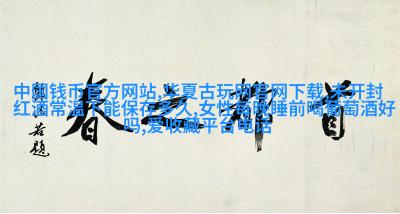 中国钱币官方网站,华夏古玩网官网下载,未开封
红酒常温下能保存多久,女性每晚睡前喝葡萄酒好
吗,爱收藏平台电话
首都之春
郭沫若题